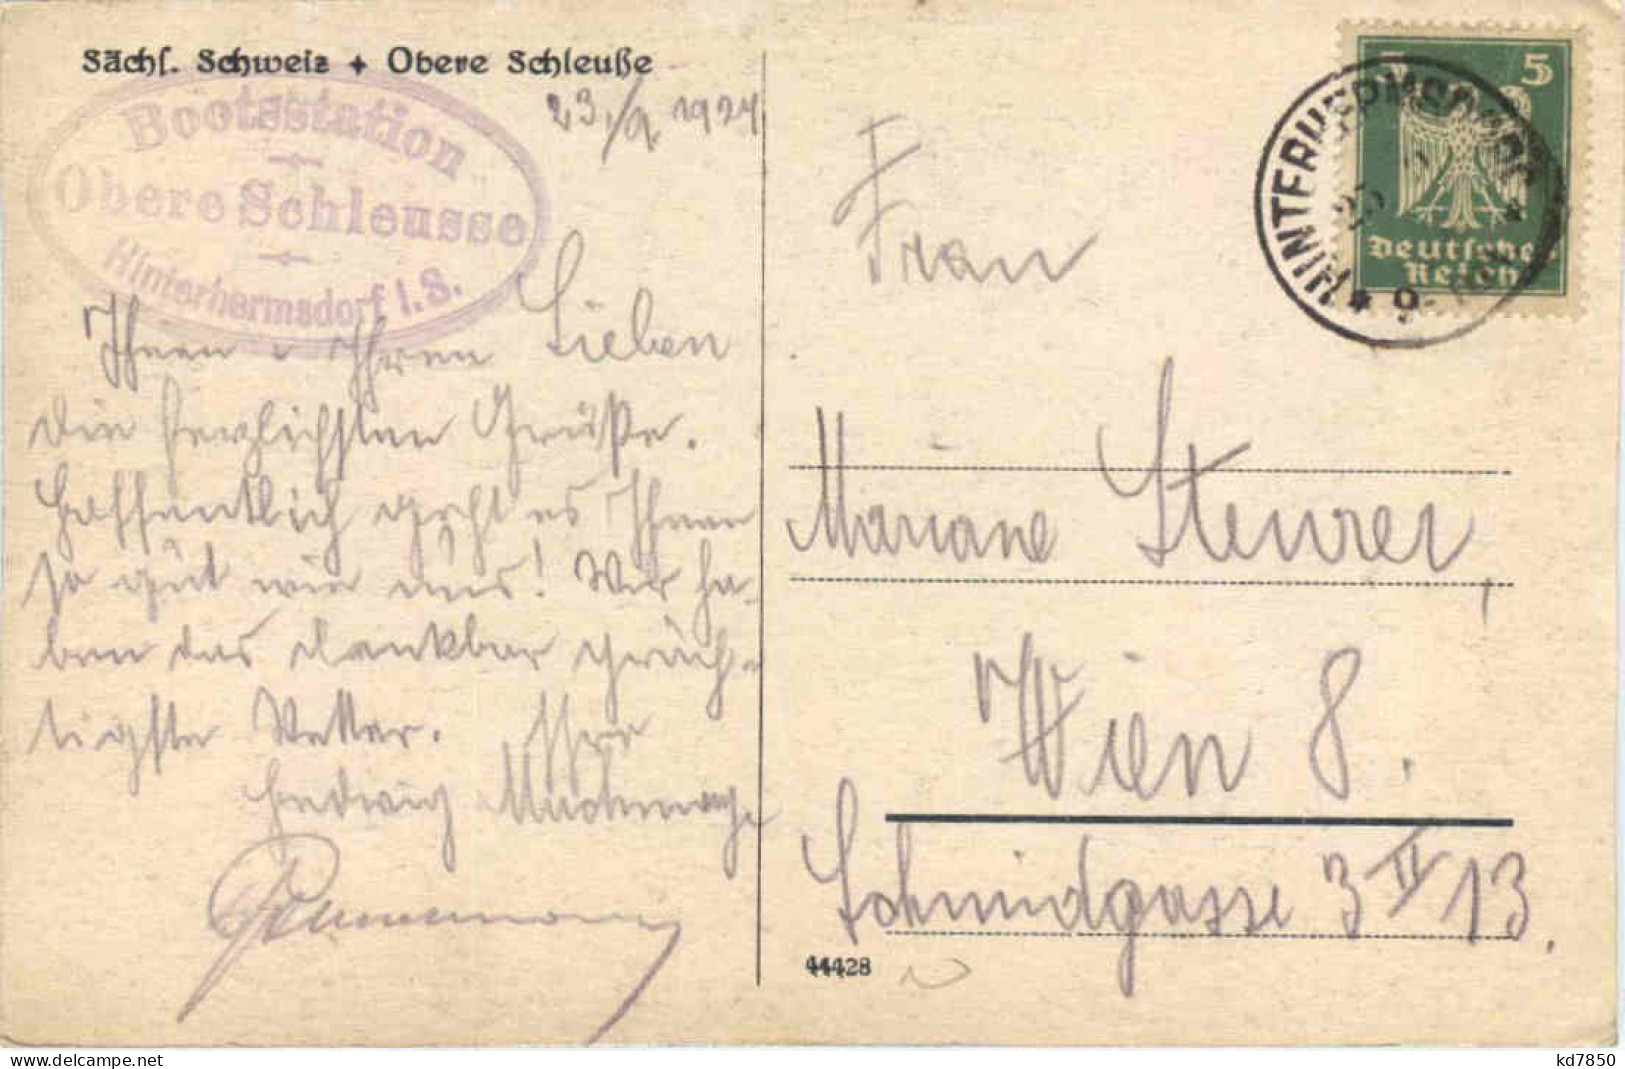 Sächs. Schweiz + Obere Schleuße
Bootsstation
Obere Schleusse
Hinterhermsdorf i. S.
23./9. 1924
Ihnen u Ihren Lieben
die herzlichsten Grüße.
Hoffentlich geht es Ihnen
so gut wie uns! Wir ha-
ben das denkbar präch-
tigste Wetter. Ihre
Hedwig
Frau
Mariane Steurer,
Wien 8.
Schmidgasse 3 II 13.
44428
5 5
Deutsches
Reich
HINTERHERMSDORF
25
9-10
delcampe.net
kd7850